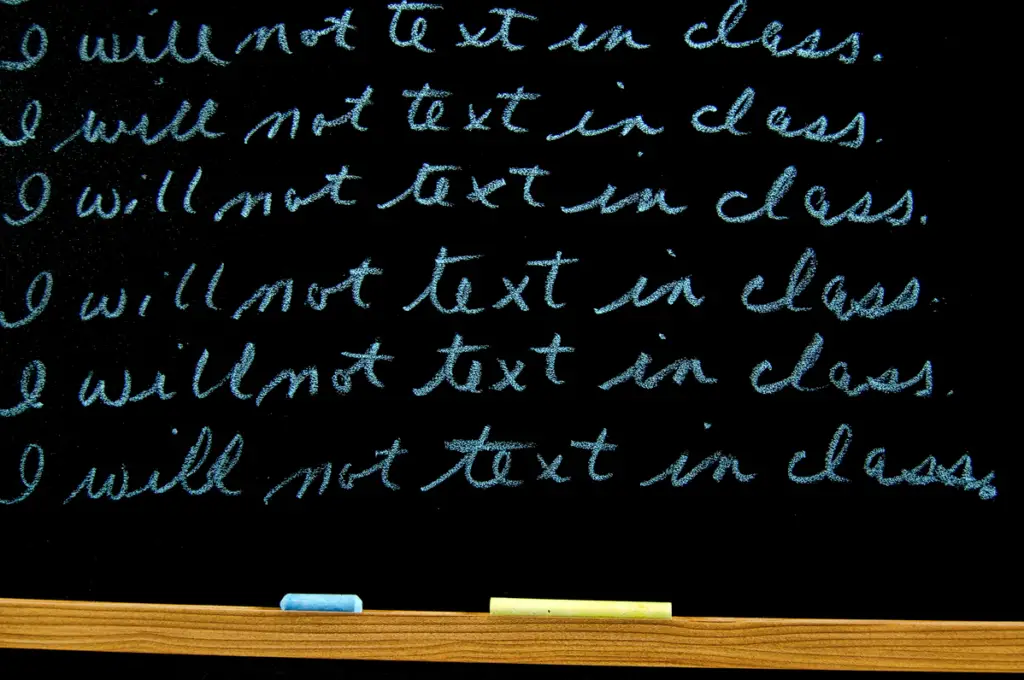 I will not text in class.
I will not text in class.
I will not text in class.
I will not text in class.
I will not text in class.
I will not text in class.